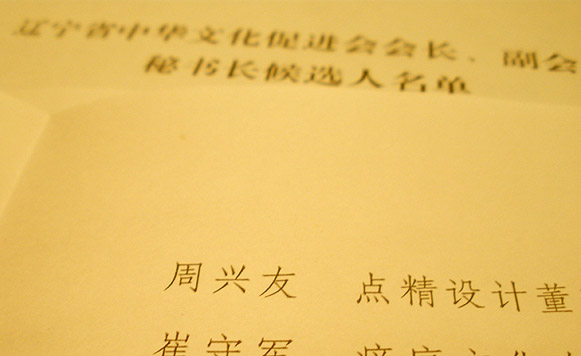 辽宁省中华文化促进会会长、副会
秘书长候选人名单
周兴友 点精设计董
崔守军